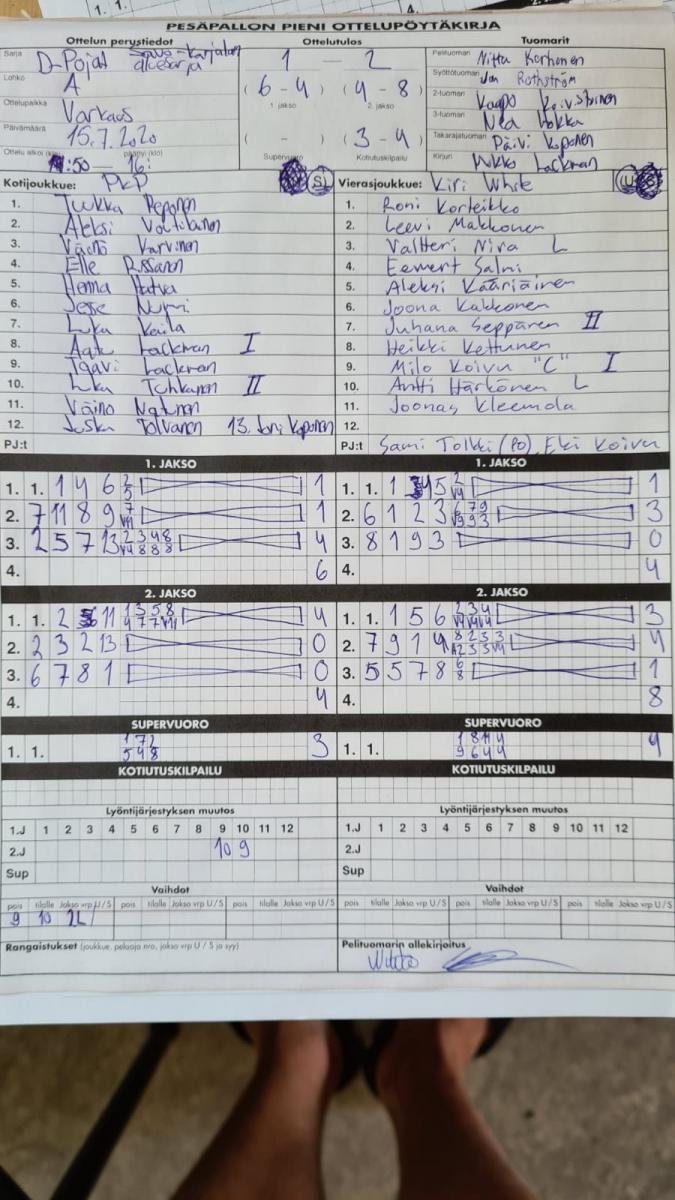 PESÄPALLON PIENI OTTELUPÖYTÄKIRJA
Ottelun perustiedot
Ottelutulos
Tuomarit
Sarja D-Pojat Savo-Karjalan aluesarja
Lohko A
Ottelupaikka Varkaus
Päivämäärä 15.7.2020
Ottelu alkoi (klo) :50 — päättyi (klo) 16:
1 — 2
(6-4) (4-8)
1. jakso 2. jakso
( - ) (3-4)
Supervuoro Kotiutuskilpailu
Pelituomari Mittu Korhonen
Syöttötuomari Jan Rothström
2-tuomari Kaapo Koivistoinen
3-tuomari Nea Hokka
Takarajatuomari Päivi Koponen
Kirjuri Mikko Lackman
Kotijoukkue: PKP S
1. Jukka Reponen
2. Aleksi Voutilainen
3. Väinö Karvinen
4. Elle Rissanen
5. Henna Hatva
6. Jesse Nurmi
7. Luka Kaila
8. Lackman I
9. Lackman
10. Luka II
11. Väinö Natunen
12. Juska Tolvanen 13. Toni Koponen
PJ:t
Vierasjoukkue: Kiri White U
1. Roni Korteikko
2. Leevi Makkonen
3. Valtteri Niva L
4. Eemert Salmi
5. Aleksi Kääriäinen
6. Joona Kakkonen
7. Juhana Seppänen II
8. Heikki Kettunen
9. Milo Koivu "C" I
10. Antti Härkönen L
11. Joonas Kleemola
12.
PJ:t Sami Tolkki (PO), Eki Koivu
1. JAKSO
1. 1. 1 4 6 2 5 1
2. 7 11 8 9 7 VII 1
3. 2 5 7 13 2 3 4 8 V4 8 8 8 4
4. 6
1. JAKSO
1. 1. 1 4 5 2 V4 1
2. 6 1 2 3 6 7 9 V9 9 3 3
3. 8 1 9 3 0
4. 4
2. JAKSO
1. 1. 2 11 1 3 5 8 4 7 7 VII 4
2. 2 3 2 13 0
3. 6 7 8 1 0
4. 4
2. JAKSO
1. 1. 1 5 6 2 3 4 V4 V4 V4 3
2. 7 9 1 4 8 2 3 3 2 3 3 V4 4
3. 5 5 7 8 6 8 1
4. 8
SUPERVUORO
1. 1. 1 7 5 4 8 3
SUPERVUORO
1. 1. 1 8 11 4 9 6 4 4 4
KOTIUTUSKILPAILU
KOTIUTUSKILPAILU
Lyöntijärjestyksen muutos
1.J 1 2 3 4 5 6 7 8 9 10 11 12
2.J 10 9
Sup
Lyöntijärjestyksen muutos
1.J 1 2 3 4 5 6 7 8 9 10 11 12
2.J
Sup
Vaihdot
pois tilalle Jakso vrp U/S pois tilalle Jakso vrp U/S pois tilalle Jakso vrp U/S
9 10 2L/
Vaihdot
pois tilalle Jakso vrp U/S pois tilalle Jakso vrp U/S pois tilalle Jakso vrp U/S
Rangaistukset (joukkue, pelaaja nro, jakso vrp U / S ja syy)
Pelituomarin allekirjoitus